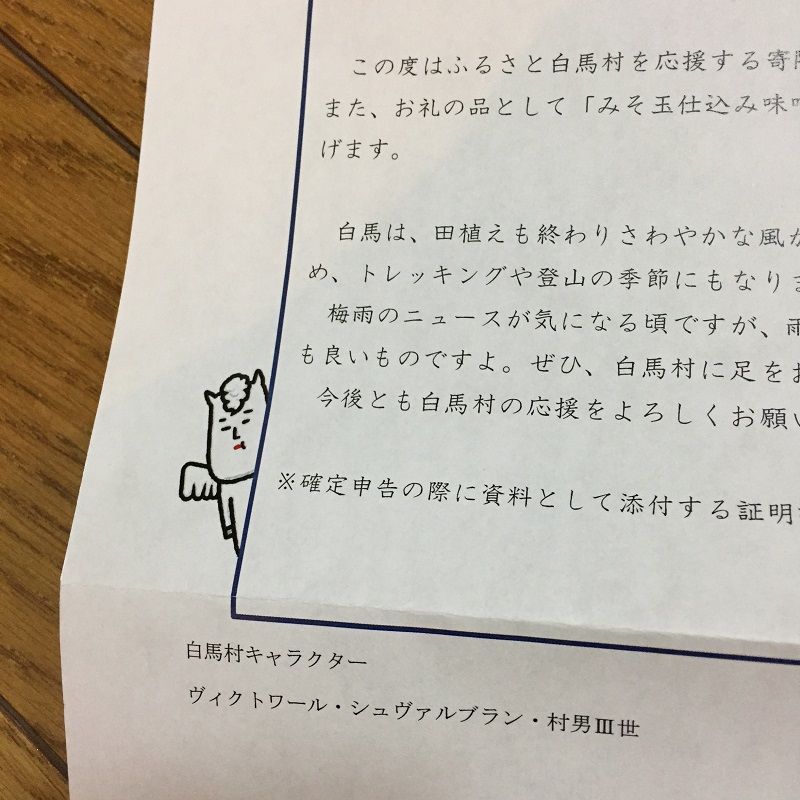 この度はふるさと白馬村を応援する寄
また、お礼の品として「みそ玉仕込み味
げます。
白馬は、田植えも終わりさわやかな風が
め、トレッキングや登山の季節にもなりま
梅雨のニュースが気になる頃ですが、雨
も良いものですよ。ぜひ、白馬村に足をお
今後とも白馬村の応援をよろしくお願い
※確定申告の際に資料として添付する証明
白馬村キャラクター
ヴィクトワール・シュヴァルブラン・村男Ⅲ世